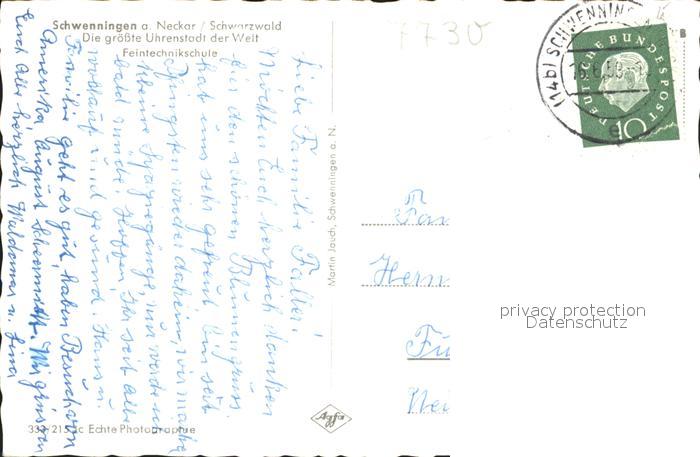 Schwenningen a. Neckar / Schwarzwald
Die größte Uhrenstadt der Welt
Feintechnikschule
7730
(14b) SCHWENNIN
e
DEUTSCHE BUNDESPOST
10
Liebe Familie Faller!
Möchten Euch herzlich danken
für den schönen Blumengruss
hat uns sehr gefreut. Bin seit
Pfingsten wieder daheim, wir machen
kleine Spaziergänge, nur werde ich
bald müde. Hoffen, Ihr seit alle
wohlauf und gesund. Hans u.
Familie geht es gut, haben Besuch von
Amerika, August Wir grüssen
Euch alle herzlich Waldemar u. Lina
Martin Jauch, Schwenningen a. N.
Fam
Herm
Fu
Agfa
Echte Photographie
privacy protection
Datenschutz